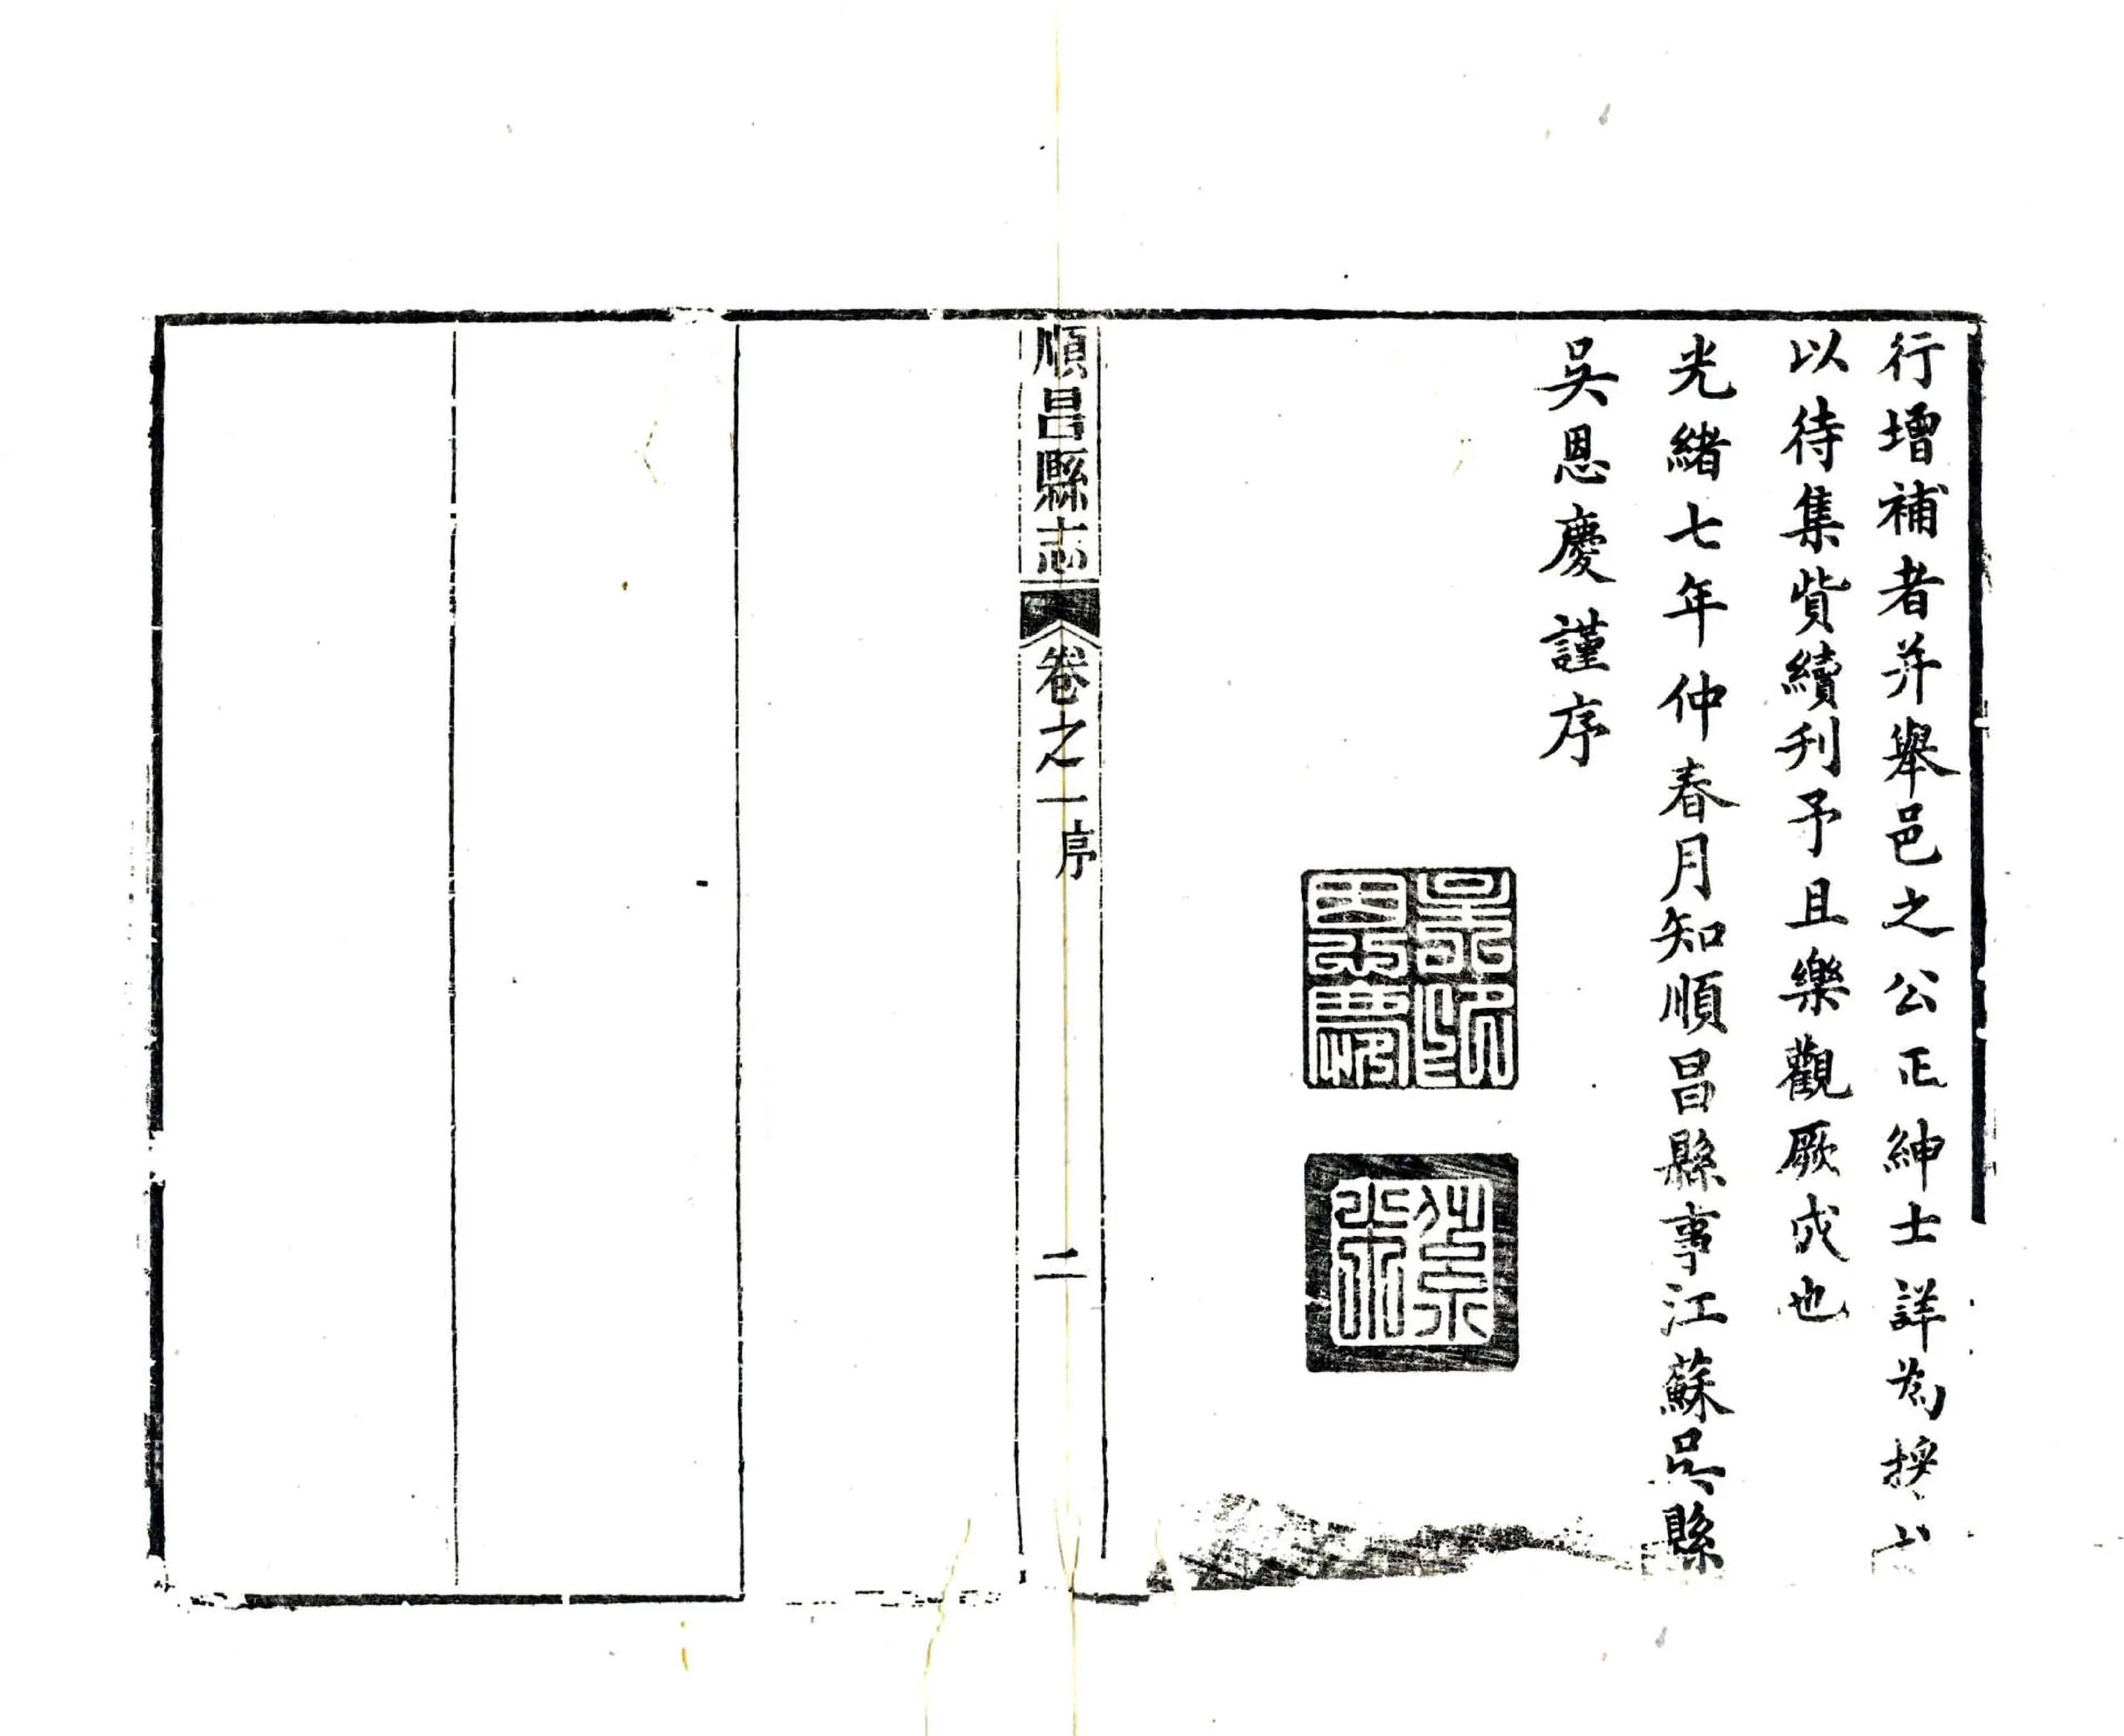 行增補者并舉邑之公正紳士詳為採
以待集貲續刋予且樂觀厥成也
光緒七年仲春月知順昌縣事江蘇吳縣
吳恩慶謹序
吳恩慶印
順昌縣志
卷之一
序
二